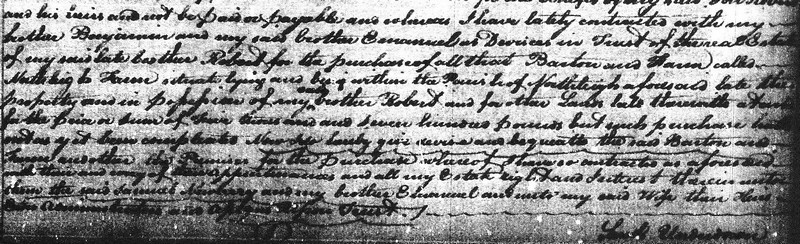 and his heirs and not be paid or payable and whereas I have lately contracted with my
brother Benjamin and my said brother Emanuel as Devisees in Trust of the real Estate
of my said late brother Robert for the purchase of all that Barton and Farm called
Farm situate lying and being within the Parish of Northleigh aforesaid late the
property and in possession of my said brother Robert and for other Lands late therewith
for the price or sum of four thousand and seven hundred pounds but such purchase
not as yet been completed Now I do hereby give devise and bequeath the said Barton and
Farm and other the Premises for the purchase whereof I have so contracted as aforesaid
with their and every of their appurtenances and all my Estate right and Interest therein unto
them the said Samuel and my brother Emanuel and unto my said Wife their
Administrators and Assigns Upon Trust